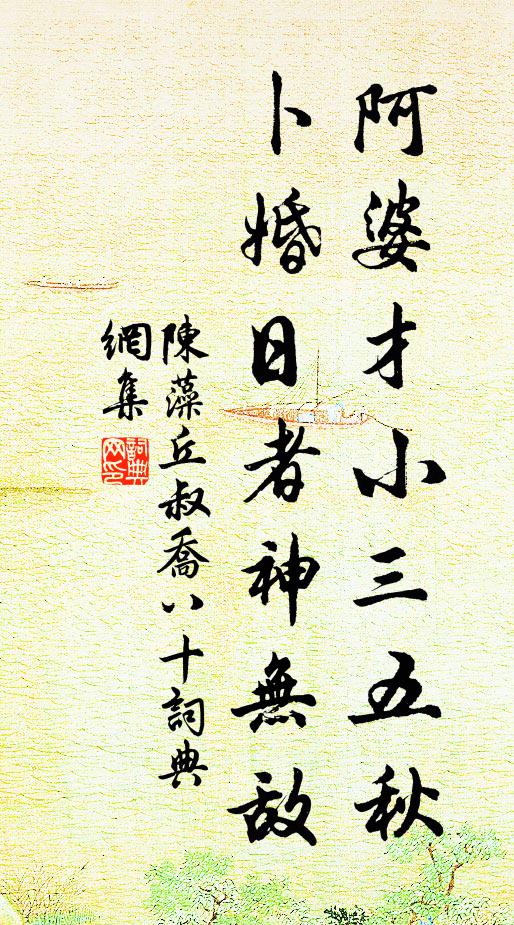 阿婆才小三五秋
卜婚日者神無敵
陳藻丘叔喬八十詞典
網集
詞典
网印